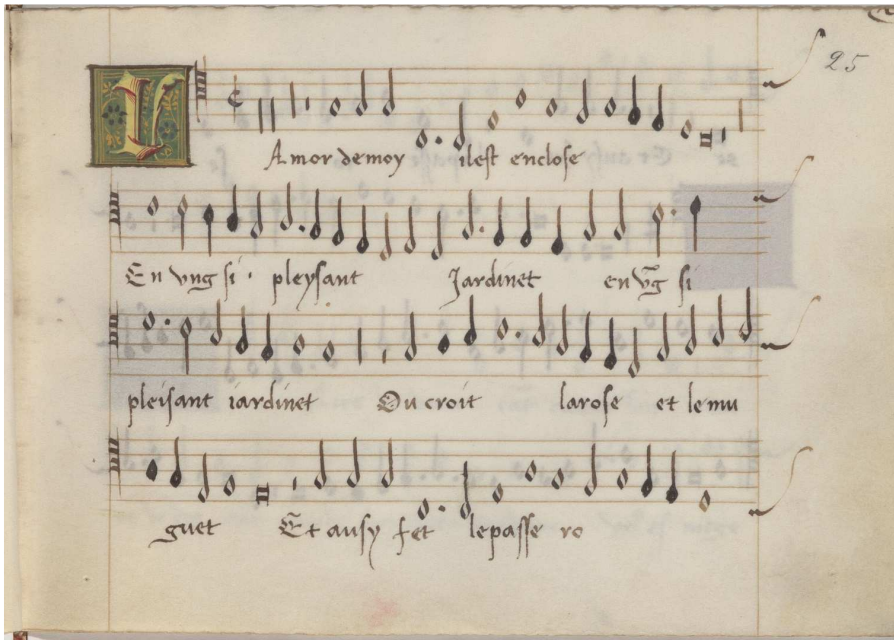 25
L Amor de moy il est enclose
En vng si pleysant Jardinet en vg̃ si
pleisant iardinet Ou croit la rose et le mu
guet Et ausy fet le passe ro